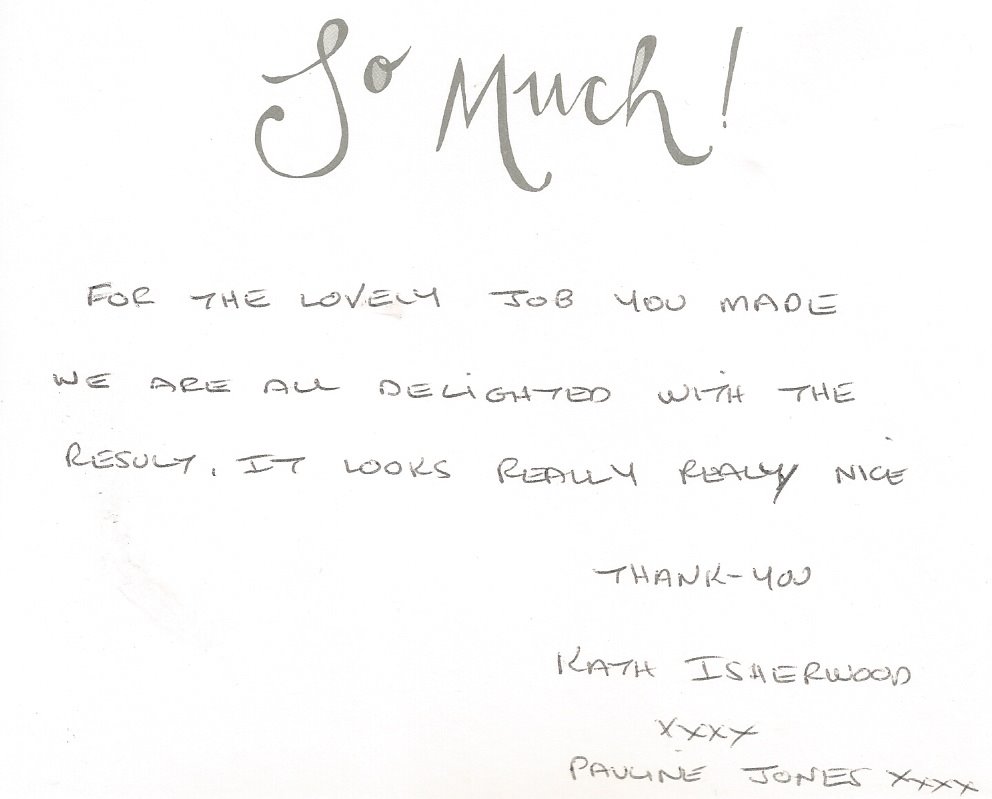 So Much!
FOR THE LOVELY JOB YOU MADE
WE ARE ALL DELIGHTED WITH THE
RESULT. IT LOOKS REALLY REALLY NICE
THANK-YOU
KATH ISHERWOOD
xxxx
PAULINE JONES xxxx